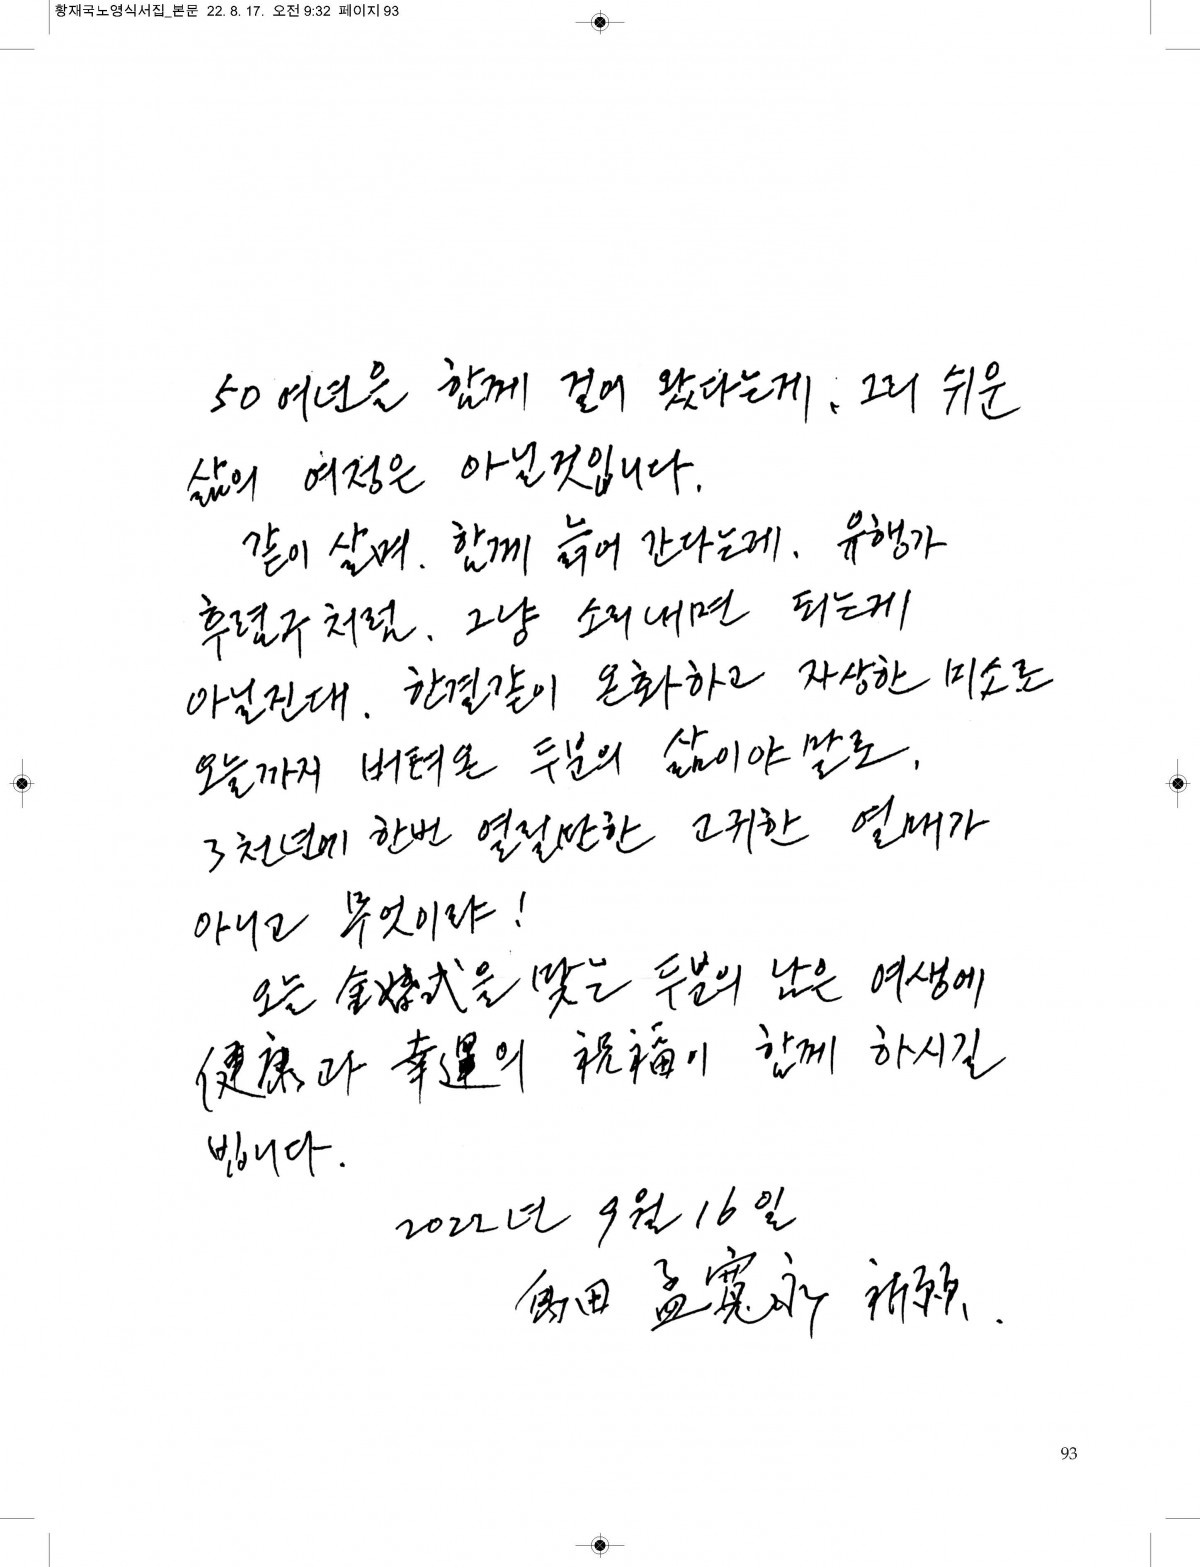 황재국노영식서집_본문 22. 8. 17. 오전 9:32 페이지 93
50여년을 함께 걸어 왔다는게, 그리 쉬운
삶의 여정은 아닐것입니다.
같이 살며, 함께 늙어 간다는게, 유행가
후렴구처럼, 그냥 소리내면 되는게
아닐진대, 한결같이 온화하고 자상한 미소로
오늘까지 버텨온 두분의 삶이야말로,
3천년에 한번 열릴만한 고귀한 열매가
아니고 무엇이랴!
오늘 金婚式을 맞는 두분의 남은 여생에
健康과 幸運의 祝福이 함께 하시길
빕니다.
2022년 9월 16일
田 孟寬永 祈願.
93